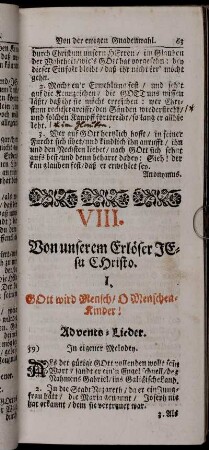 Von der ewigen Gnadenwahl. 63
durch Christum unsern HErrn, im Glauben
der Wahrheit, wie's GOtt hat vorgesehn; bey
dieser Einfalt bleibt, daß ihr nicht irr'
gehet.
2. Macht eu'r Erwehlung fest, und
an die Kennzeichen, die GOtt uns wissen
läßt; daß sie nicht errettet, wer Chri-
stum vorsetzet Sünden widerstrebt, und
solchen Kampf so lang er allhie
lebt.
3. Wer auf GOtt hertzlich hoffe, in seiner
Furcht sich übet, und kindlich ihn anruft, ihn
und den Nechsten liebet, nach GOtt sich sehnt
aufs best, und denn beharret dabey: Sieh, der
kan glauben fest, daß er erwehlet sey.
Anonymus.
VIII.
Von unserem Erlöser JE-
su CHristo.
I.
GOtt wird Mensch, O Menschen-
Kinder!
Advents-Lieder.
89) In eigener Melodey.
Als der gütige GOtt vollenden wollt sein
Wort, sandt er ein'n Engel schnell, des
Nahmens Gabriel, ins Galiläische Land,
2. In die Stadt Nazareth, da er ein Jung-
frau hätt, die Maria genannt, Joseph nie
hat erkannt, dem sie vertrauet war.
3. Als